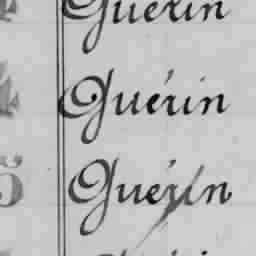 Guérin
Guérin
5 Guérin